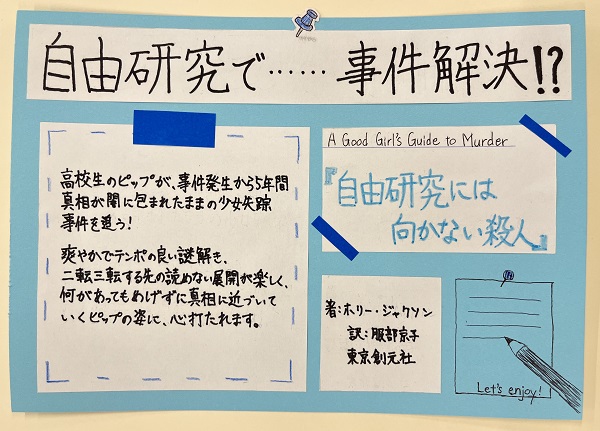 自由研究で……事件解決!?
高校生のピップが、事件発生から5年間
真相が闇に包まれたままの少女失踪
事件を追う!
爽やかでテンポの良い謎解き、
二転三転する先の読めない展開が楽しく、
何があってもめげずに真相に近づいて
いくピップの姿に、心打たれます。
A Good Girl's Guide to Murder
『自由研究には
向かない殺人』
著:ホリー・ジャクソン
訳:服部京子
東京創元社
Let's enjoy!